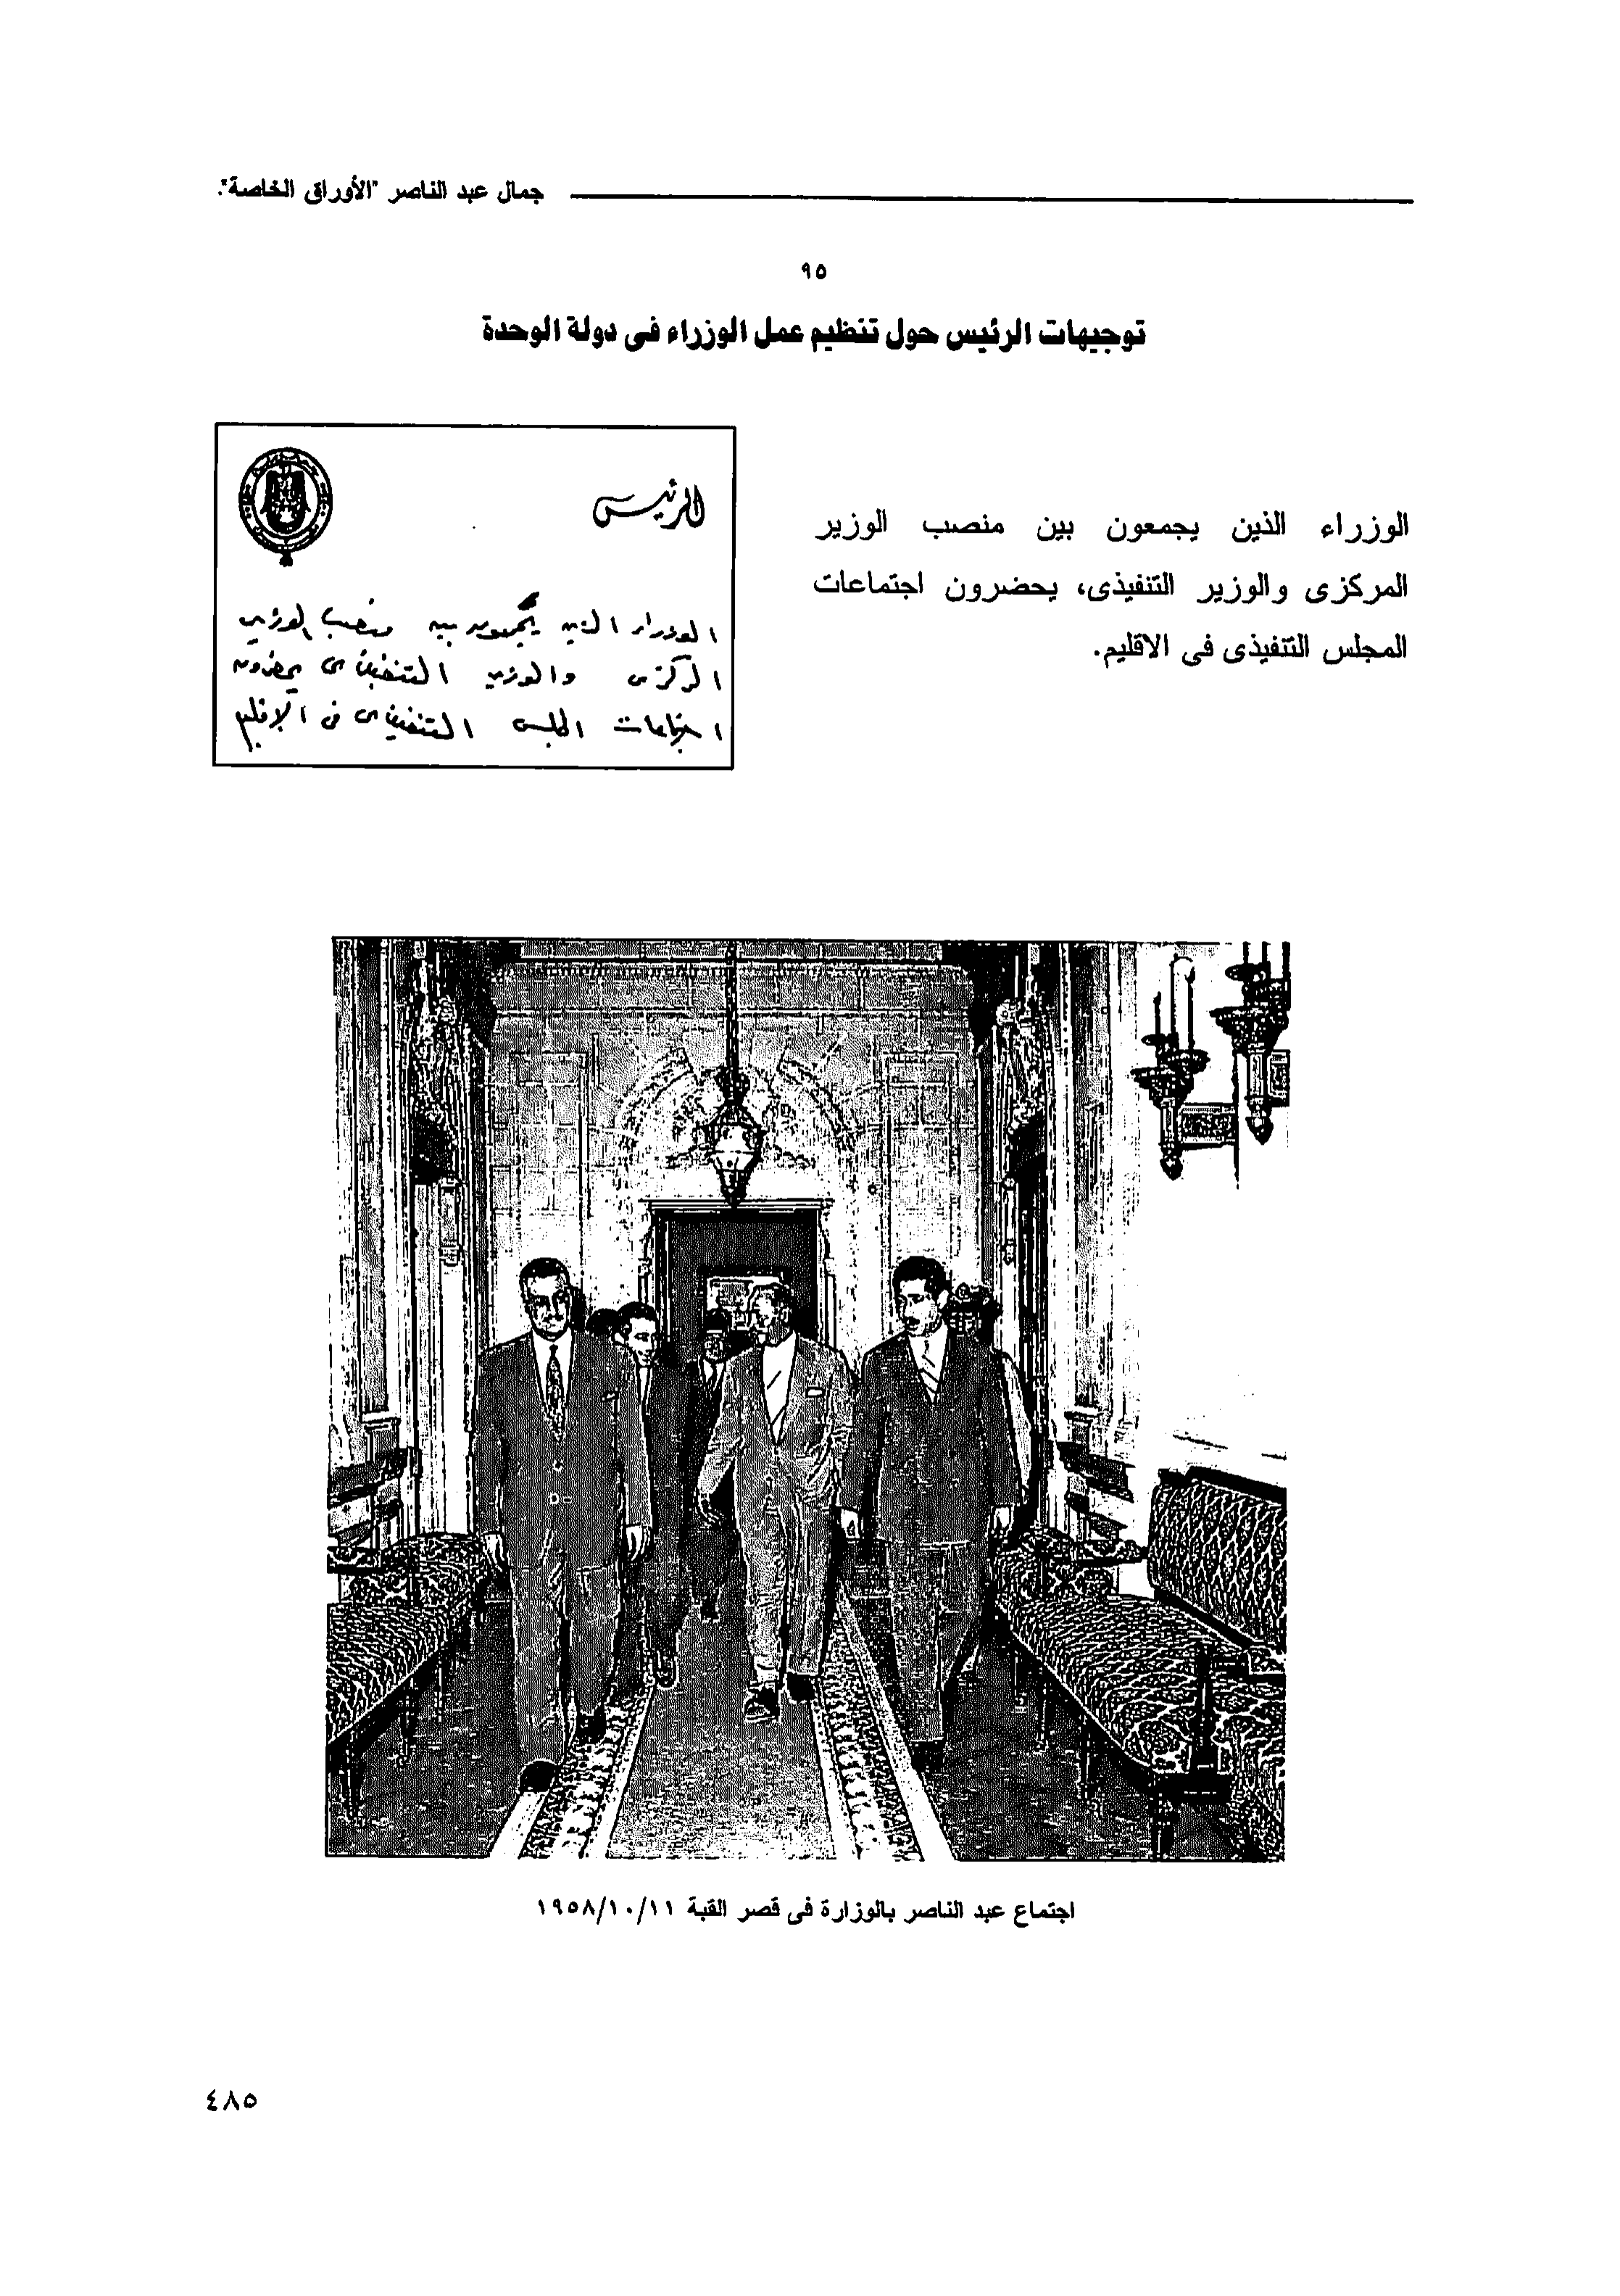 جمال عبد الناصر "الأوراق الخاصة".
٩٥
توجيهات الرئيس حول تنظيم عمل الوزراء فى دولة الوحدة
الوزراء الذين يجمعون بين منصب الوزير
المركزى والوزير التنفيذى، يحضرون اجتماعات
المجلس التنفيذى فى الاقليم.
الرئيس
الوزراء الذين يجمعون بين منصب الوزير
المركزى والوزير التنفيذى يحضرون
اجتماعات المجلس التنفيذى فى الاقليم
اجتماع عبد الناصر بالوزارة فى قصر القبة ١٩٥٨/١٠/١١
٤٨٥